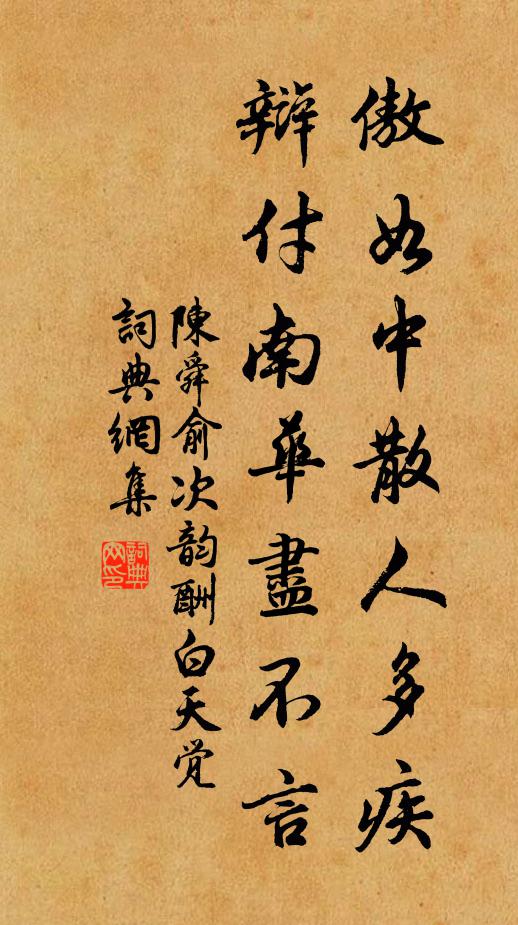 傲如中散人多疾
辯付南華盡不言
陳舜俞次韵酬白天觉
詞典網集
詞典网印